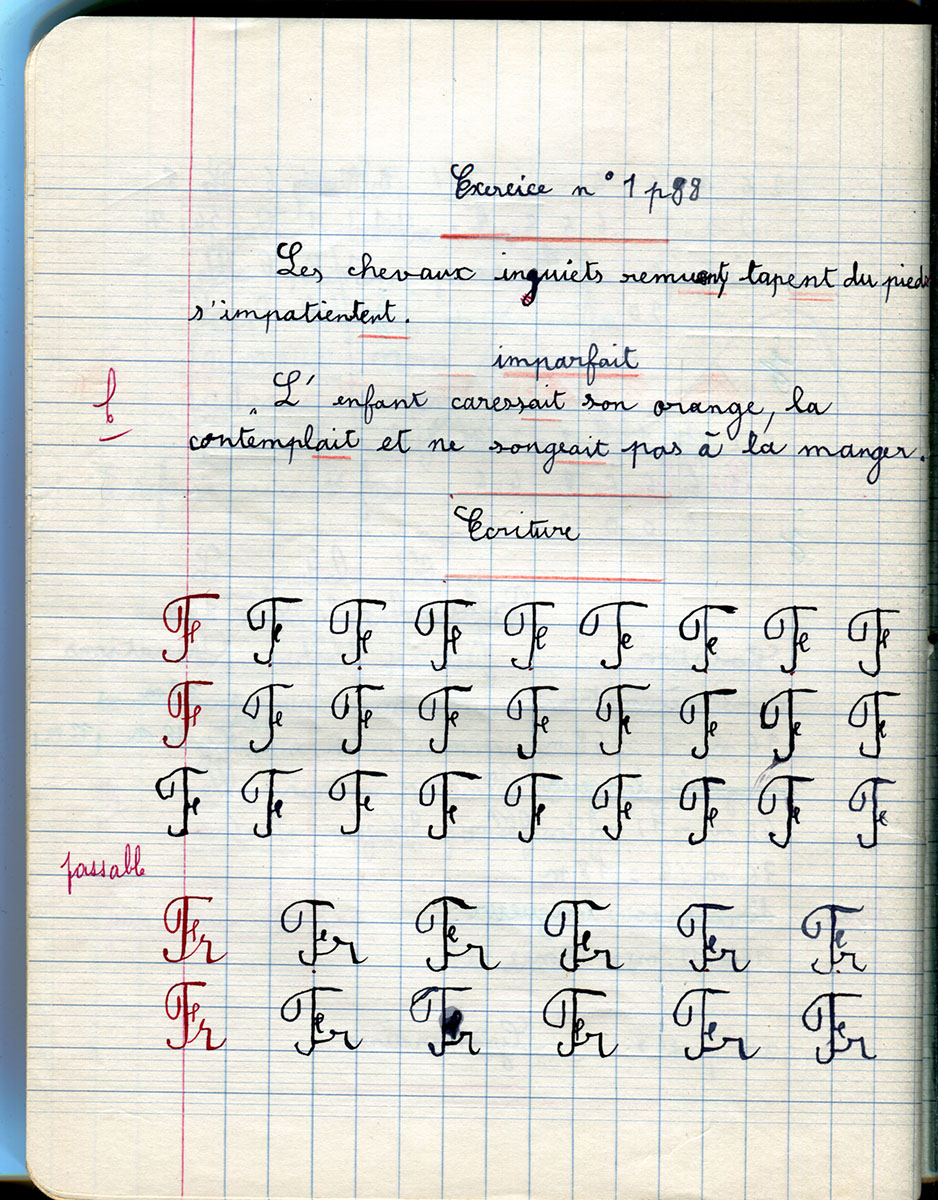 Exercice n° 1 p 88
Les chevaux inquiets remuent, tapent du pied
s'impatientent.
imparfait
b
L'enfant caressait son orange, la
contemplait et ne songeait pas à la manger.
Ecriture
Fe Fe Fe Fe Fe Fe Fe Fe Fe
Fe Fe Fe Fe Fe Fe Fe Fe Fe
Fe Fe Fe Fe Fe Fe Fe Fe Fe
passable
Fer Fer Fer Fer Fer Fer
Fer Fer Fer Fer Fer Fer